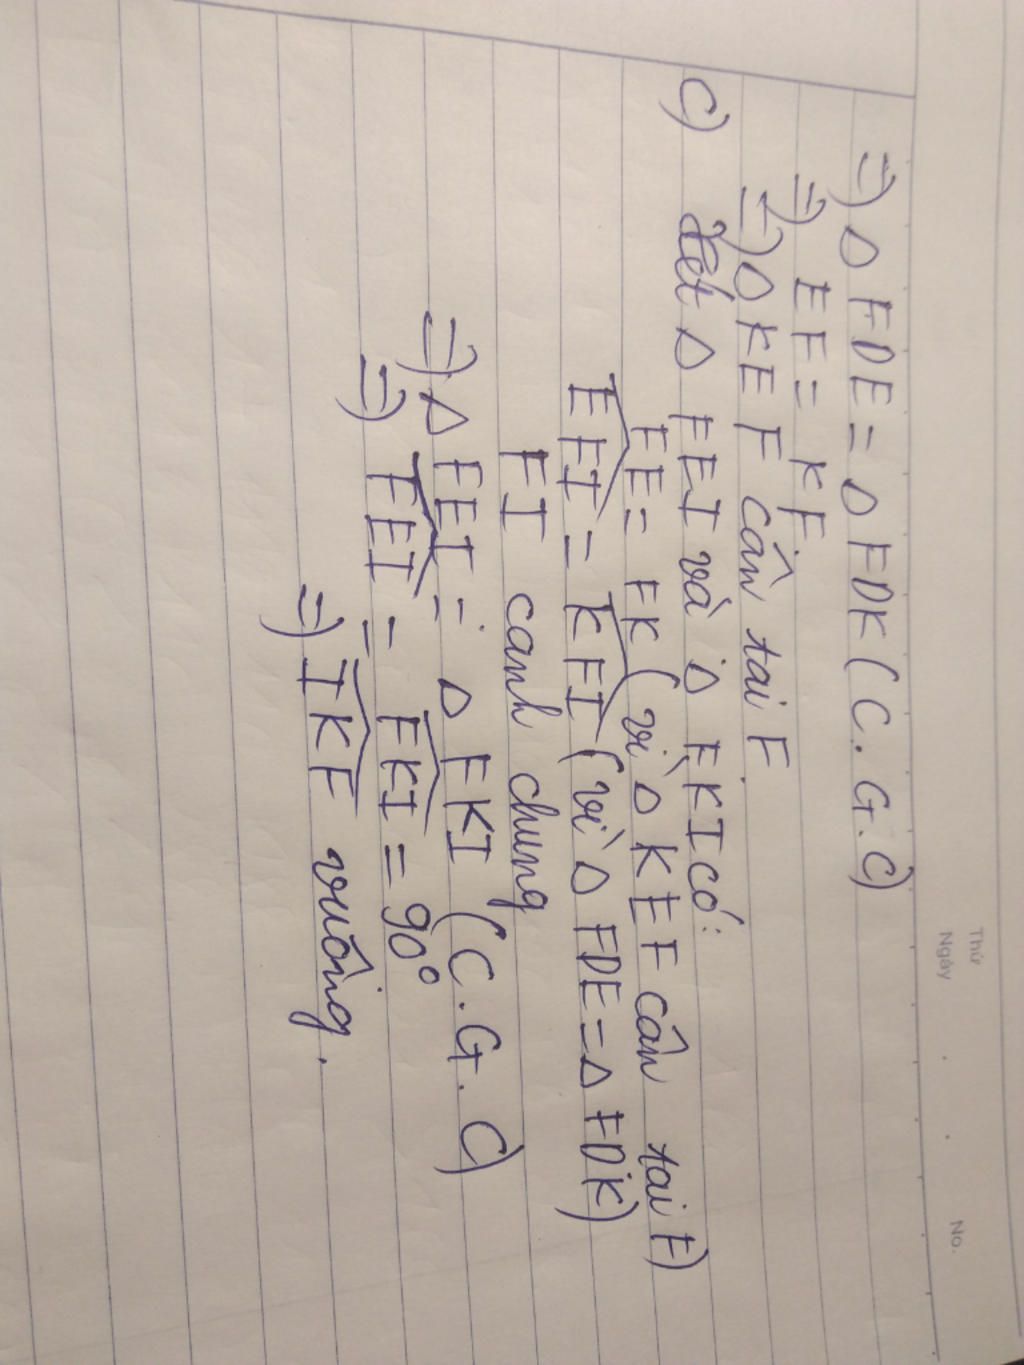 Thứ
Ngày
No.
=) Δ FDE = Δ FDK (C.G.C)
=) EF = KF
=) Δ KEF cân tại F
C) Xét Δ FEI và Δ FKI có:
FE = FK (vì Δ KEF cân tại F)
EFI = KFI (vì Δ FDE = Δ FDK)
FI cạnh chung
=) Δ FEI = Δ FKI (C.G.C)
=) FEI = FKI = 90°
=) IKF vuông.